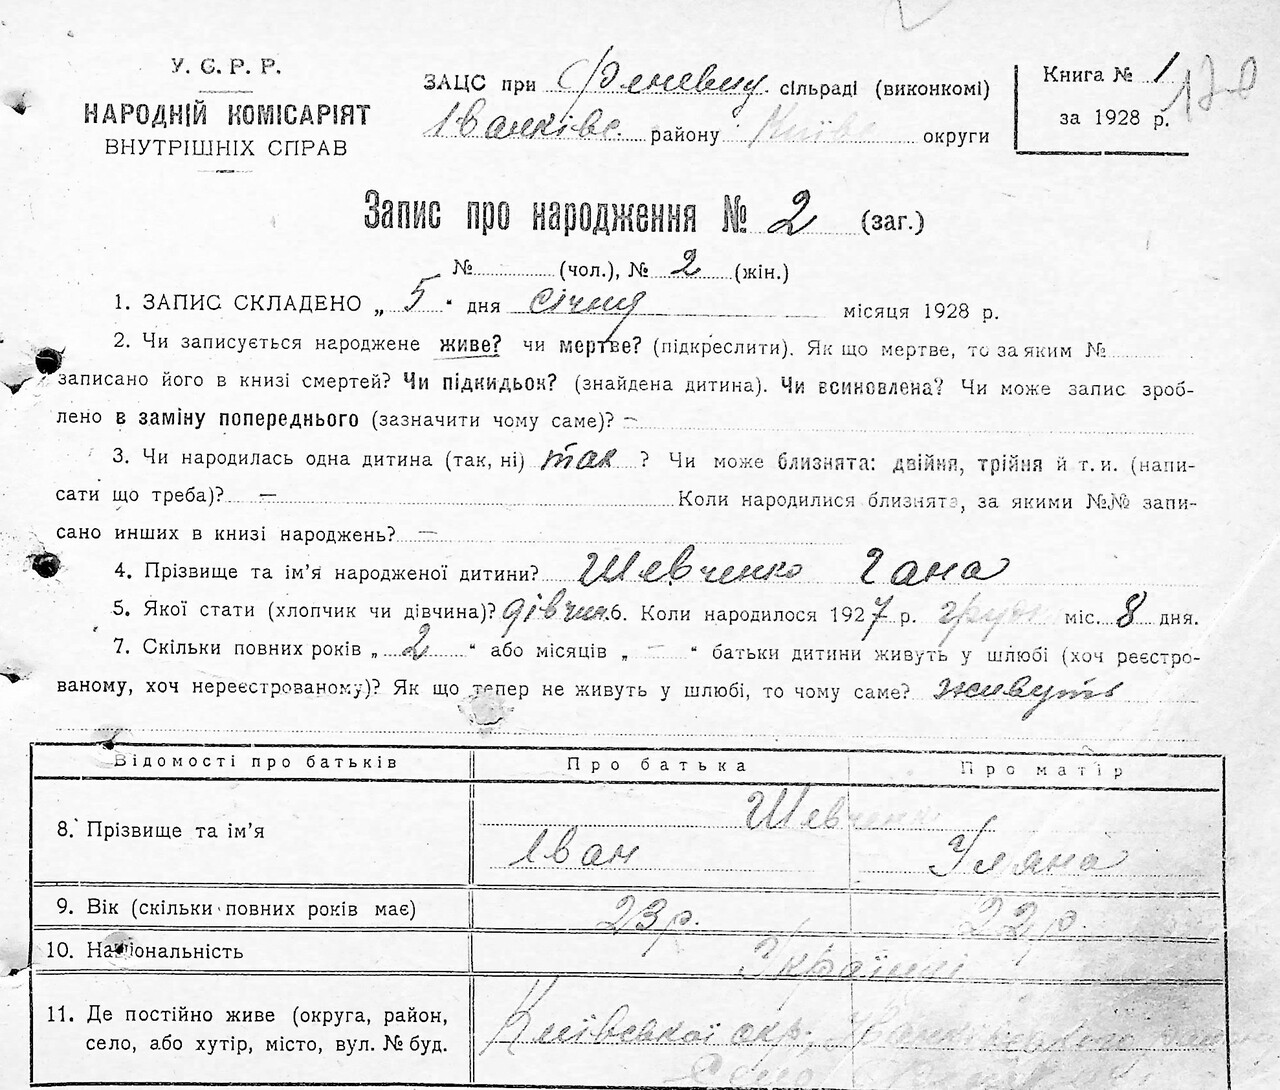 У. С. Р. Р.
НАРОДНІЙ КОМІСАРІЯТ
ВНУТРІШНІХ СПРАВ
ЗАЦС при сільраді (виконкомі)
Іванківс. району Київс округи
Книга № 1
за 1928 р.
Запис про народження № 2 (заг.)
№ (чол.), № 2 (жін.)
1. ЗАПИС СКЛАДЕНО „ 5 “ дня січня місяця 1928 р.
2. Чи записується народжене живе? чи мертве? (підкреслити). Як що мертве, то за яким №
записано його в книзі смертей? Чи підкидьок? (знайдена дитина). Чи всиновлена? Чи може запис зроб-
лено в заміну попереднього (зазначити чому саме)? —
3. Чи народилась одна дитина (так, ні) так ? Чи може близнята: двійня, трійня й т. и. (напи-
сати що треба)? — Коли народилися близнята, за якими №№ запи-
сано инших в книзі народжень? —
4. Прізвище та ім’я народженої дитини? Шевченко Гана
5. Якої стати (хлопчик чи дівчина)? дівчин. 6. Коли народилося 1927 р. грудн міс. 8 дня.
7. Скільки повних років „ 2 “ або місяців „ — “ батьки дитини живуть у шлюбі (хоч реєстро-
ваному, хоч нереєстрованому)? Як що тепер не живуть у шлюбі, то чому саме? живуть
Відомості про батьків Про батька Про матір
8. Прізвище та ім’я Шевченк
Іван Уляна
9. Вік (скільки повних років має) 23 р. 22 р.
10. Національність Українці
11. Де постійно живе (округа, район, Київської окр, Іванківського району
село, або хутір, місто, вул. № буд. Село